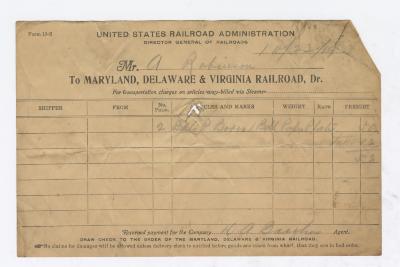 Form 13-B
UNITED STATES RAILROAD ADMINISTRATION
DIRECTOR GENERAL OF RAILROADS
Mr. A Robinson
To MARYLAND, DELAWARE & VIRGINIA RAILROAD, Dr.
For transportation charges on articles way-billed via Steamer
SHIPPER FROM No. PCKGS. ICLES AND MARKS WEIGHT RATE FREIGHT
2
Received payment for the Company Agent.
DRAW CHECK TO THE ORDER OF THE MARYLAND, DELAWARE & VIRGINIA RAILROAD.
No claims for damages will be allowed unless delivery clerk is notified before goods are taken from wharf, that they are in bad order.